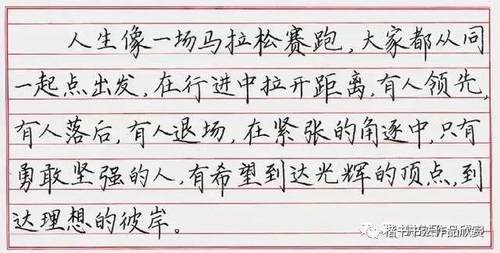 人生像一场马拉松赛跑，大家都从同
一起点出发，在行进中拉开距离，有人领先，
有人落后，有人退场，在紧张的角逐中，只有
勇敢坚强的人，有希望到达光辉的顶点，到
达理想的彼岸。
楷书书法作品欣赏